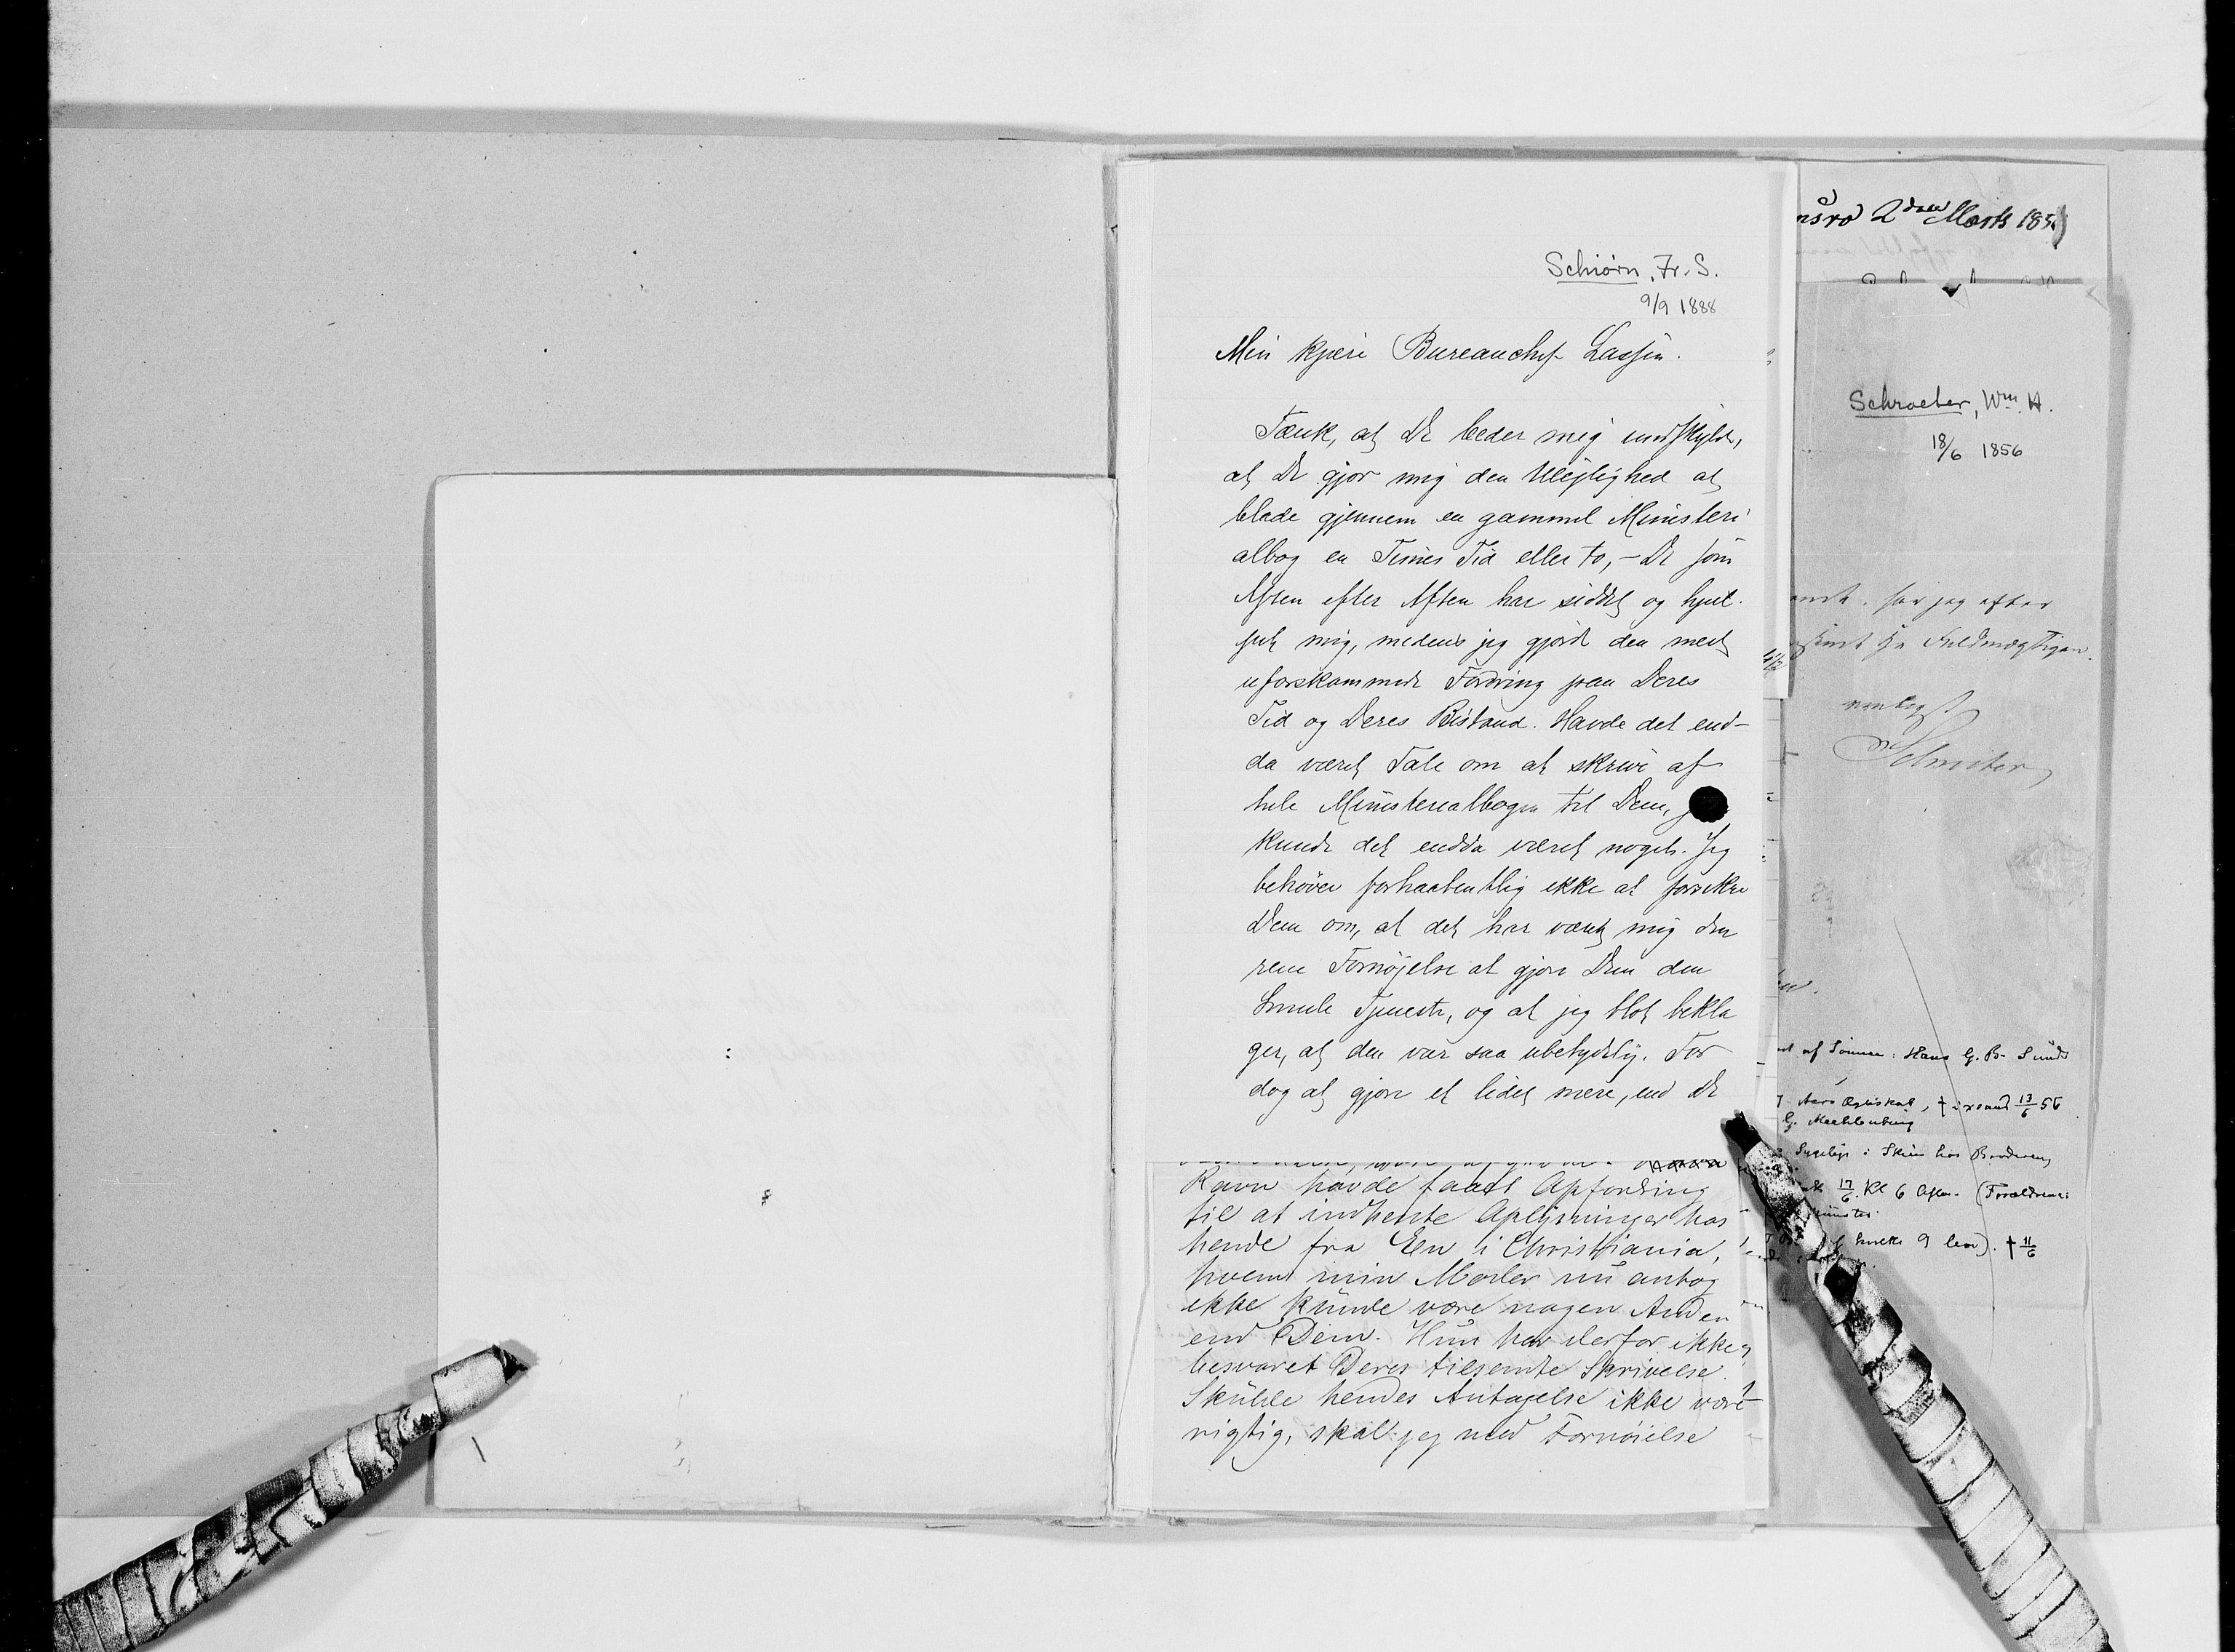 Schiørn, Fr. S.
9/9 1888
Min kjære Bureauchef Lassen.
Tænk, at De beder mig undskylde,
at De gjør mig den Ulejlighed at
blade gjennem en gammel Ministeri
albog en Times Tid eller to, – De som
Aften efter Aften har siddet og hjul-
pet mig, medens jeg gjorde den mest
uforskammede Fordring paa Deres
Tid og Deres Bistand. Havde det end-
da været Tale om at skrive af
hele Ministerialbogen til Dem,
kunde det endda været noget. Jeg
behøver forhaabentlig ikke at forsikre
Dem om, at det har været mig den
rene Fornøjelse at gjøre Dem den
Smule Tjeneste, og at jeg blot bekla
ger, at den var saa ubetydelig. For
dog at gjøre et lidet mere, end De
Ravn havde faaet Opfordring
til at indhente Oplysninger hos
hende fra Een i Christiania,
hvem min Moder nu antog
ikke kunde være nogen Anden
end Dem. Hun har derfor ikke
besvaret Deres tilsendte Skrivelse.
Skulde hendes Antagelse ikke være
rigtig, skal jeg med Fornøielse
2den Marts 185
Schroeter, Wm. H.
18/6 1856
har jeg efter
Fuldmægtigen
venligst
Schroeter
af Sønnen: Hans G. B. Sundt
Aars Ægteskab, † 13/6 56
G. Mecklenburg
Sygeleje i Skien hos Broderen
17/6. Kl 6 Efterm. (Forældrene:
9 leve). † 11/6